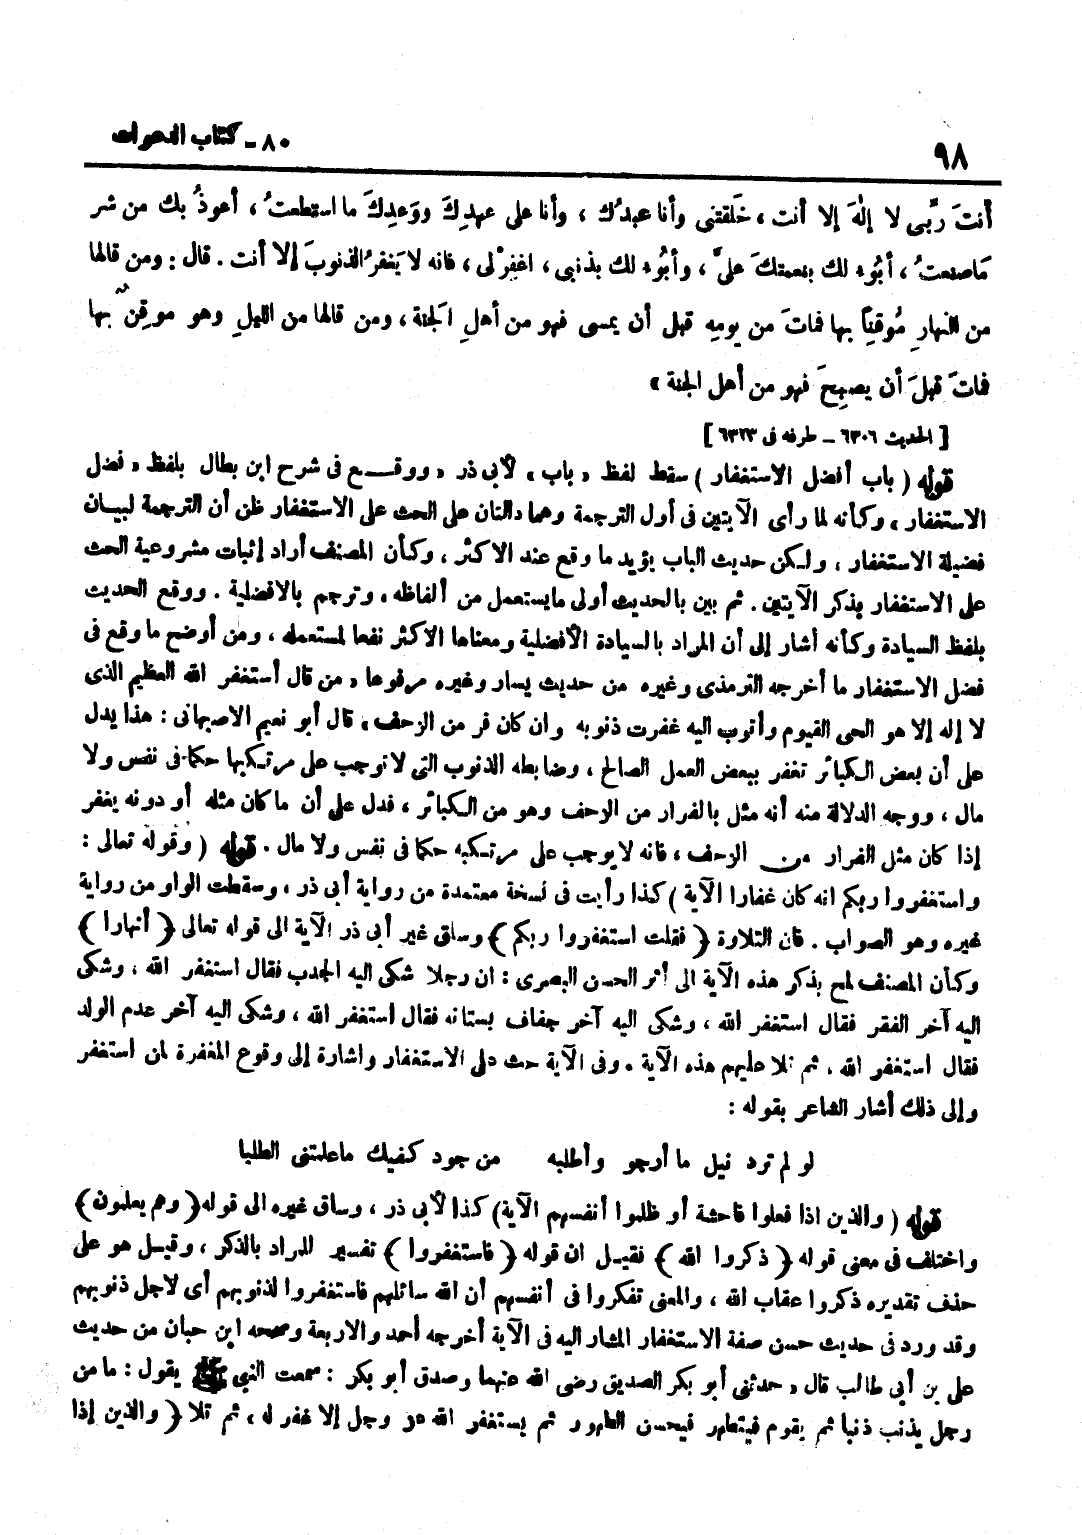 ٩٨
٨٠ - كتاب الدعوات
أنتَ ربِّى لا إلٰهَ إلا أنت ، خَلقتنى وأنا عبدُك ، وأنا على عهدِكَ ووَعدِكَ ما استطعتُ ، أعوذُ بك من شر
مَاصنعتُ ، أبُوء لك بنعمتكَ علىَّ ، وأبُوء لك بذنبى ، اغفِرْ لى ، فانه لا يَغفرُ الذنوبَ إلا أنت . قال : ومن قالها
من النهارِ مُوقِناً بها فماتَ من يومِهِ قبل أن يمسى فهو من أهلِ الجنة ، ومن قالها من الليلِ وهو موقِنٌ بها
فماتَ قبلَ أن يصبِحَ فهو من أهل الجنة »
[ الحديث ٦٣٠٦ – طرفه فى ٦٣٢٣ ]
قوله ( باب أفضل الاستغفار ) سقط لفظ « باب » لأبى ذر « ووقع فى شرح ابن بطال بلفظ « فضل
الاستغفار » وكأنه لما رأى الآيتين فى أول الترجمة وهما دالتان على الحث على الاستغفار ظن أن الترجمة لبيان
فضيلة الاستغفار ، ولكن حديث الباب يؤيد ما وقع عند الاكثر ، وكأن المصنف أراد إثبات مشروعية الحث
على الاستغفار بذكر الآيتين . ثم بين بالحديث أولى مايستعمل من ألفاظه ، وترجم بالافضلية . ووقع الحديث
بلفظ السيادة وكأنه أشار إلى أن المراد بالسيادة الأفضلية ومعناها الاكثر نفعا لمستعمله ، ومن أوضح ما وقع فى
فضل الاستغفار ما أخرجه الترمذى وغيره من حديث يسار وغيره مرفوعا « من قال أستغفر الله العظيم الذى
لا إله إلا هو الحى القيوم وأتوب اليه غفرت ذنوبه وان كان فر من الزحف » قال أبو نعيم الاصبهانى : هذا يدل
على أن بعض الكبائر تغفر ببعض العمل الصالح ، وضابطه الذنوب التى لا توجب على مرتكبها حكما فى نفس ولا
مال ، ووجه الدلالة منه أنه مثل بالفرار من الزحف وهو من الكبائر ، فدل على أن ما كان مثله أو دونه يغفر
إذا كان مثل الفرار من الزحف ، فانه لا يوجب على مرتكبه حكما فى نفس ولا مال . قوله ( وقوله تعالى :
واستغفروا ربكم انه كان غفارا الآية ) كذا رأيت فى نسخة معتمدة من رواية أبى ذر ، وسقطت الواو من رواية
غيره وهو الصواب . فان التلاوة ﴿ فقلت استغفروا ربكم ﴾ وساق غير أبى ذر الآية الى قوله تعالى ﴿ أنهارا ﴾
وكأن المصنف لمح بذكر هذه الآية الى أثر الحسن البصرى : ان رجلا شكى اليه الجدب فقال استغفر الله ، وشكى
اليه آخر الفقر فقال استغفر الله ، وشكى اليه آخر جفاف بستانه فقال استغفر الله ، وشكى اليه آخر عدم الولد
فقال استغفر الله ، ثم تلا عليهم هذه الآية . وفى الآية حث على الاستغفار واشارة إلى وقوع المغفرة لمن استغفر
وإلى ذلك أشار الشاعر بقوله :
لو لم ترد نيل ما أرجو وأطلبه من جود كفيك ماعلمتنى الطلبا
قوله ( والذين اذا فعلوا فاحشة أو ظلموا أنفسهم الآية ) كذا لأبى ذر ، وساق غيره الى قوله ﴿ وهم يعلمون ﴾
واختلف فى معنى قوله ﴿ ذكروا الله ﴾ فقيل ان قوله ﴿ فاستغفروا ﴾ تفسير للمراد بالذكر ، وقيل هو على
حذف تقديره ذكروا عقاب الله ، والمعنى تفكروا فى أنفسهم أن الله سائلهم فاستغفروا لذنوبهم أى لاجل ذنوبهم
وقد ورد فى حديث حسن صفة الاستغفار المشار اليه فى الآية أخرجه أحمد والاربعة وصححه ابن حبان من حديث
على بن أبى طالب قال « حدثنى أبو بكر الصديق رضى الله عنهما وصدق أبو بكر : سمعت النبى ﷺ يقول : ما من
رجل يذنب ذنبا ثم يقوم فيتطهر فيحسن الطهور ثم يستغفر الله عز وجل إلا غفر له ، ثم تلا ﴿ والذين إذا